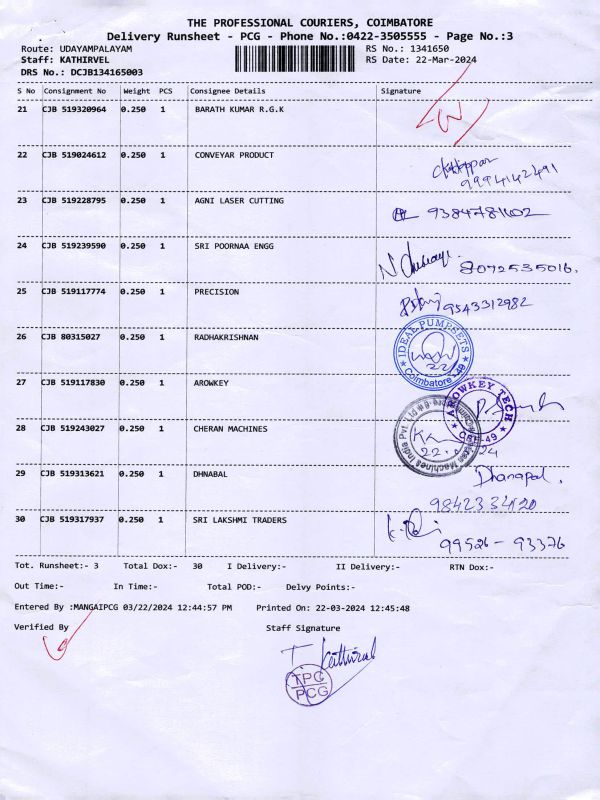 THE PROFESSIONAL COURIERS, COIMBATORE
Delivery Runsheet - PCG - Phone No.:0422-3505555 - Page No.:3
Route: UDAYAMPALAYAM RS No.: 1341650
Staff: KATHIRVEL RS Date: 22-Mar-2024
DRS No.: DCJB134165003
S No Consignment No Weight PCS Consignee Details Signature
21 CJB 519320964 0.250 1 BARATH KUMAR R.G.K
22 CJB 519024612 0.250 1 CONVEYAR PRODUCT
9994142491
23 CJB 519228795 0.250 1 AGNI LASER CUTTING 9384781602
24 CJB 519239590 0.250 1 SRI POORNAA ENGG
8072535016.
25 CJB 519117774 0.250 1 PRECISION
9543312982
26 CJB 80315027 0.250 1 RADHAKRISHNAN
IDEAL PUMPSETS
22
Coimbatore-49
27 CJB 519117830 0.250 1 AROWKEY
AROWKEY TECH
CBE-49
28 CJB 519243027 0.250 1 CHERAN MACHINES
Machines India Pvt Ltd
29 CJB 519313621 0.250 1 DHNABAL Dhanapal.
9842334120
30 CJB 519317937 0.250 1 SRI LAKSHMI TRADERS
99526-93376
Tot. Runsheet:- 3 Total Dox:- 30 I Delivery:- II Delivery:- RTN Dox:-
Out Time:- In Time:- Total POD:- Delvy Points:-
Entered By :MANGAIPCG 03/22/2024 12:44:57 PM Printed On: 22-03-2024 12:45:48
Verified By Staff Signature
T Kathirvel
TPC
PCG